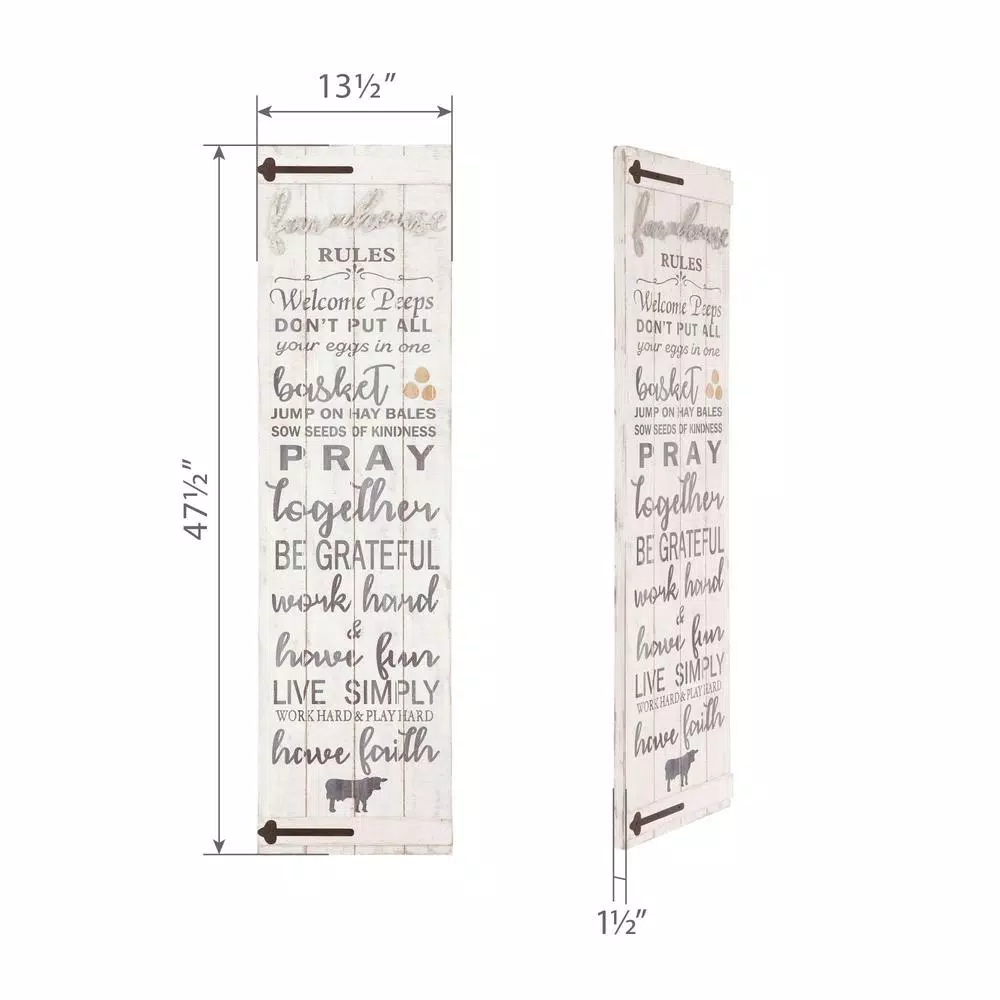 13½"
47½"
farmhouse
RULES
Welcome Peeps
DON'T PUT ALL
your eggs in one
basket
JUMP ON HAY BALES
SOW SEEDS OF KINDNESS
PRAY
together
BE GRATEFUL
work hard
&
have fun
LIVE SIMPLY
WORK HARD & PLAY HARD
have faith
farmhouse
RULES
Welcome Peeps
DON'T PUT ALL
your eggs in one
basket
JUMP ON HAY BALES
SOW SEEDS OF KINDNESS
PRAY
together
BE GRATEFUL
work hard
&
have fun
LIVE SIMPLY
WORK HARD & PLAY HARD
have faith
1½"